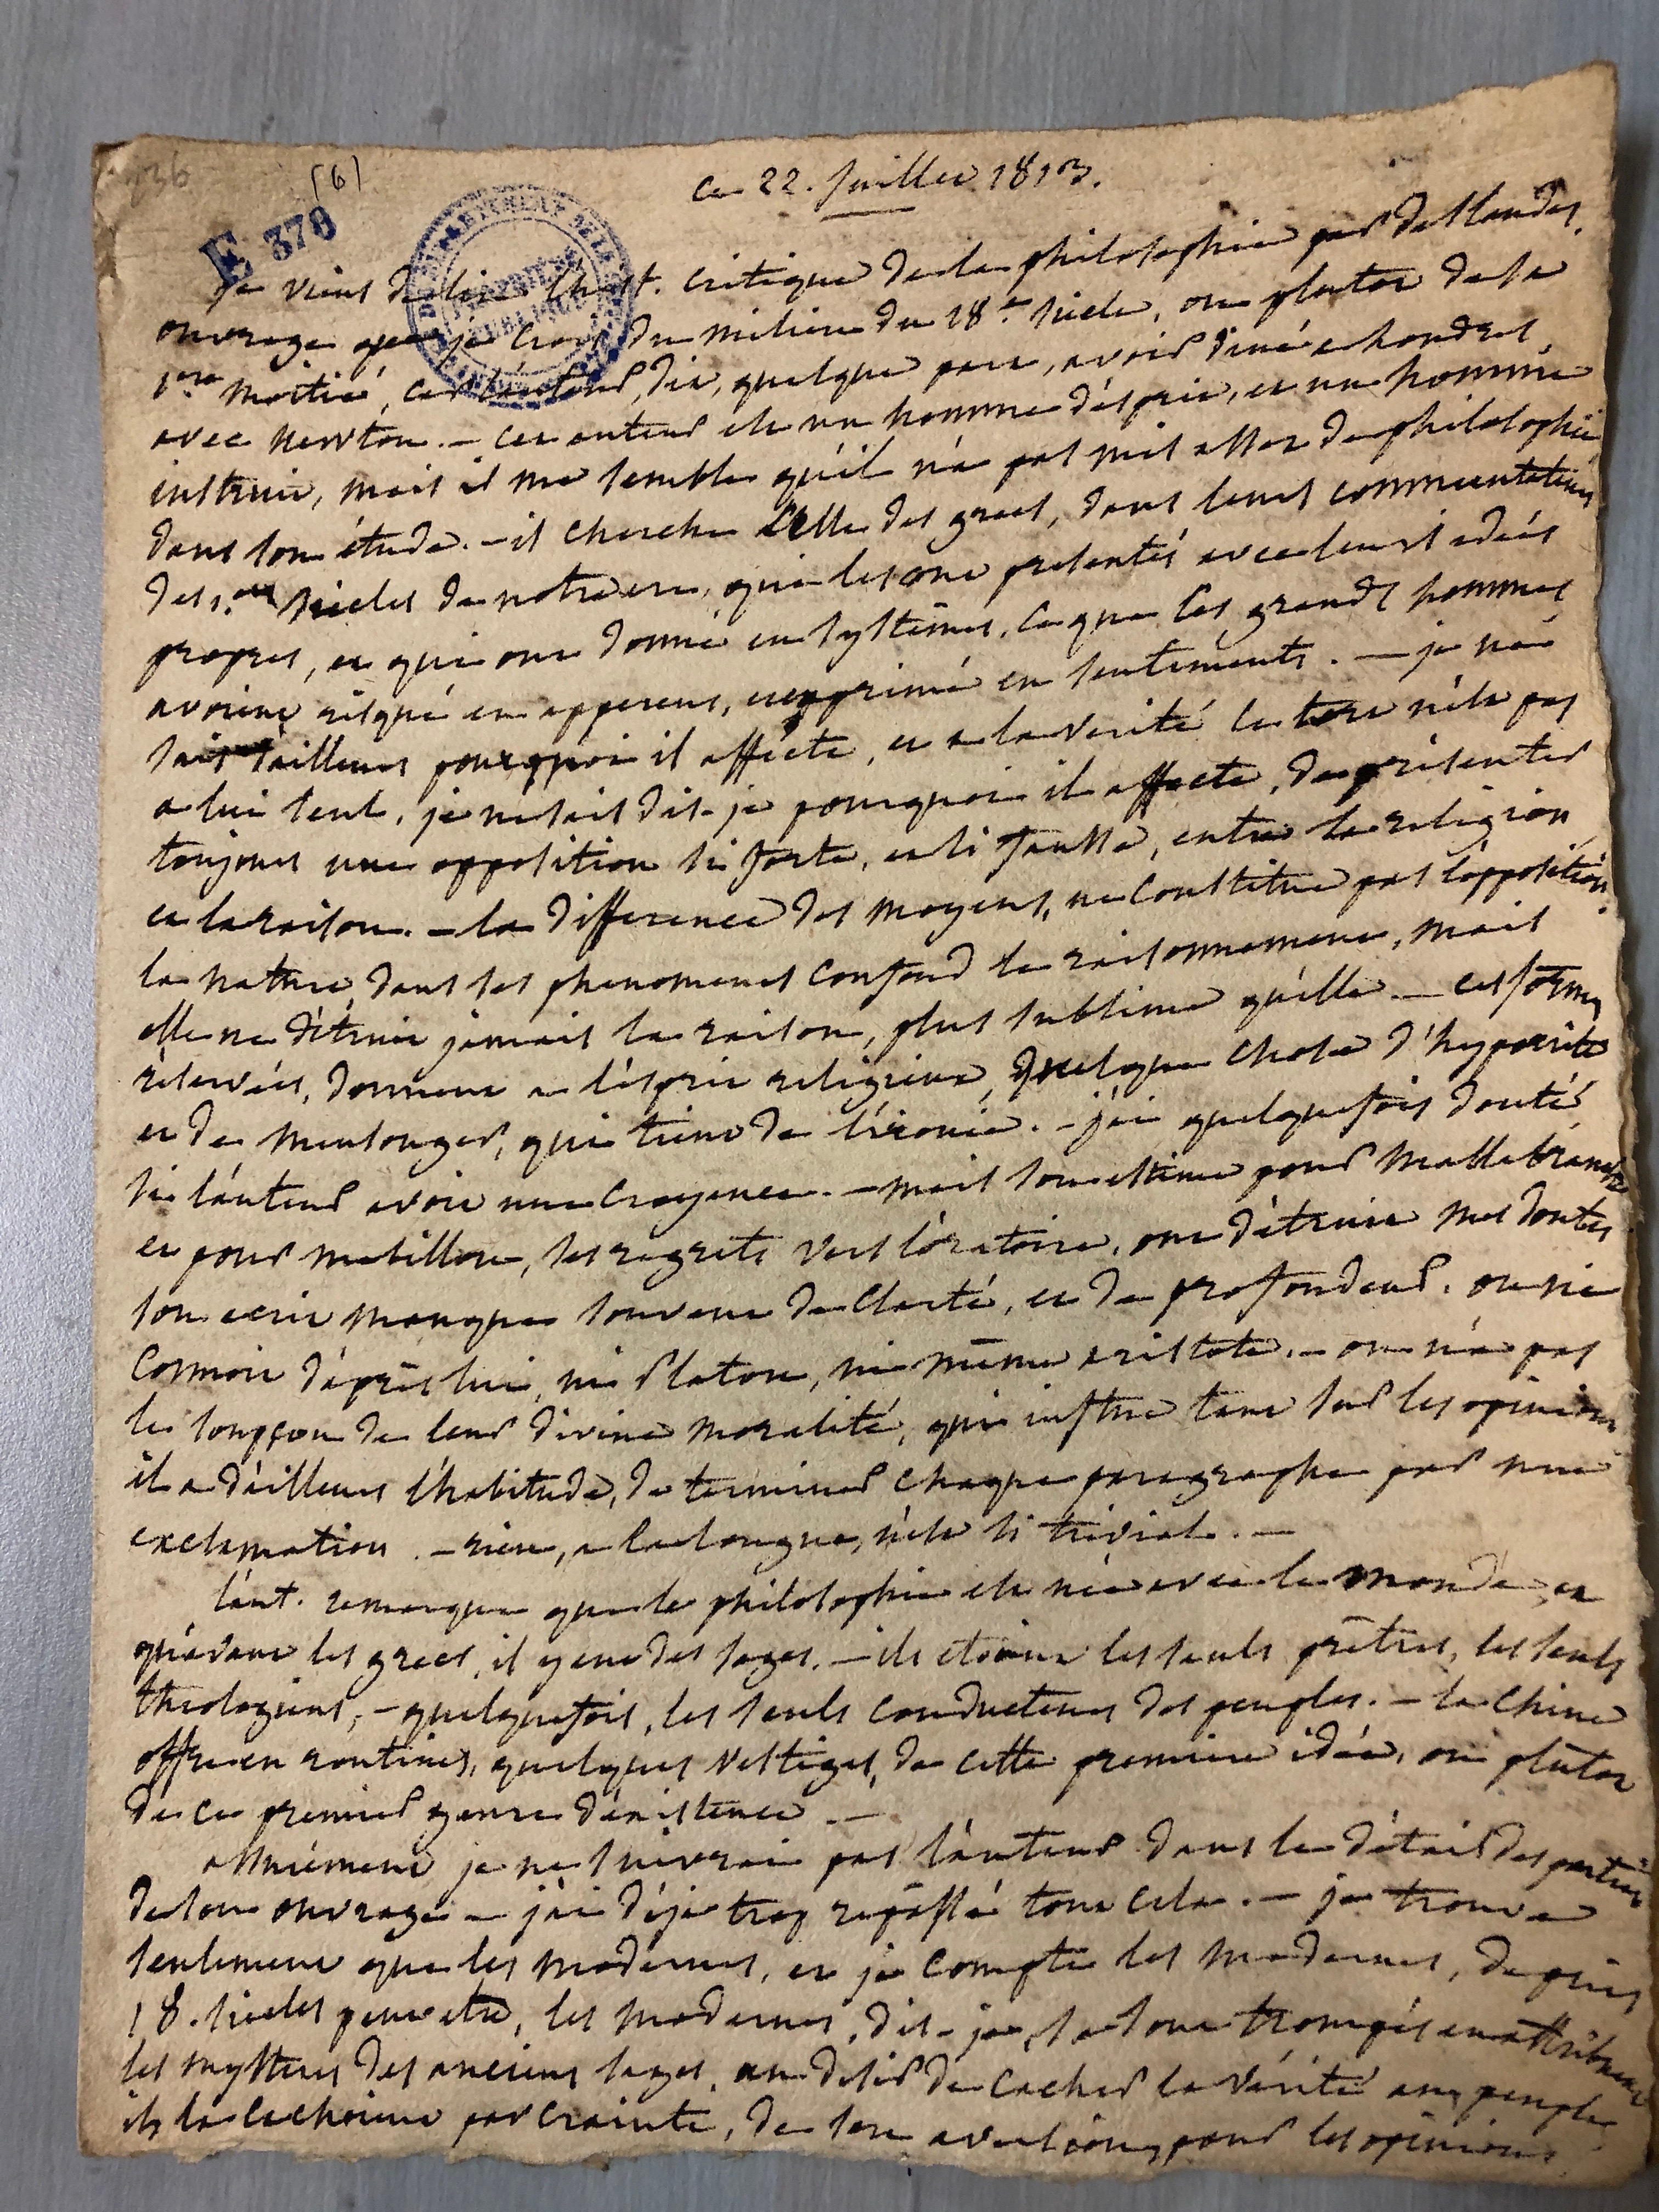 236
(6)
ce 22. juillet 1813.
E 378
je viens de lire l'hist. critique de la philosophie par deslandes,
ouvrage que je crois du milieu du 18.e siecle, ou plutot de sa
1ere moitié, car l'auteur, dit, quelque part, avoir diné a Londres,
avec newton. – cet auteur est un homme d'ésprit, et un homme
instruit, mais il me semble qu'il n'a pas mis assez de philosophie
dans son étude. – il cherche celle des grecs, dans leurs commentateurs
des 1.ers siecles de notre ere, qui les ont presentés avec leurs idées
propres, et qui ont donné en systêmes, ce que les grands hommes
avoient risqué en apperçus, et exprimé en sentiments. – je ne
sais d'ailleurs pourquoi il affécte, et a la verité le tort n'est pas
a lui seul, je ne sais dis-je pourquoi il affecte, de présenter
toujours une opposition si forte, et si fausse, entre la religion
et la raison. – la difference des moyens, ne constitue pas l'opposition.
la nature, dans ses phenomenes confond le raisonnement, mais
elle ne détruit jamais la raison, plus sublime qu'elle. – ces formes
réservées, donnent a l'ésprit religieux, quelque chose d'hypocrite
et de mensonger, qui tient de l'ironie. – j'ai quelquefois douté
si l'auteur avoit une croyance. – mais son estime pour mallebranche
et pour mabillon, ses regrets vers l'oratoire, ont détruit mes doutes
son ecrit manque souvent de clarté, et de profondeur. on ne
connoit d'après lui, ni Platon, ni même aristote. – on n'a pas
le soupçon de leur divine moralité, qui influe tant sur les opinions
il a d'ailleurs l'habitude, de terminer chaque paragraphe par une
exclamation. – rien, a la longue, n'est si trivial. –
l'aut. remarque que la philosophie est née avec le monde et
qu'avant les grecs, il y eut des sages. – ils etoient les seuls prêtres, les seuls
theologiens, – quelquefois, les seuls conducteurs des peuples. – la chine
offre en routines, quelques vestiges, de cette premiere idée, ou plutot
de ce premier genre d'éxistence. –
assurément je ne suivrai pas l'auteur dans le détail des parties
de son ouvrage – j'ai déja trop repassé tout cela. – je trouve
seulement que les modernes, et je compte les modernes, depuis
18. siecles peut etre, les modernes, dis-je, se sont trompés en attribuant
les mysteres des anciens sages, au desir de cacher la vérité aux peuples
ils la cachoient par crainte, de leur aversion, pour les opinions